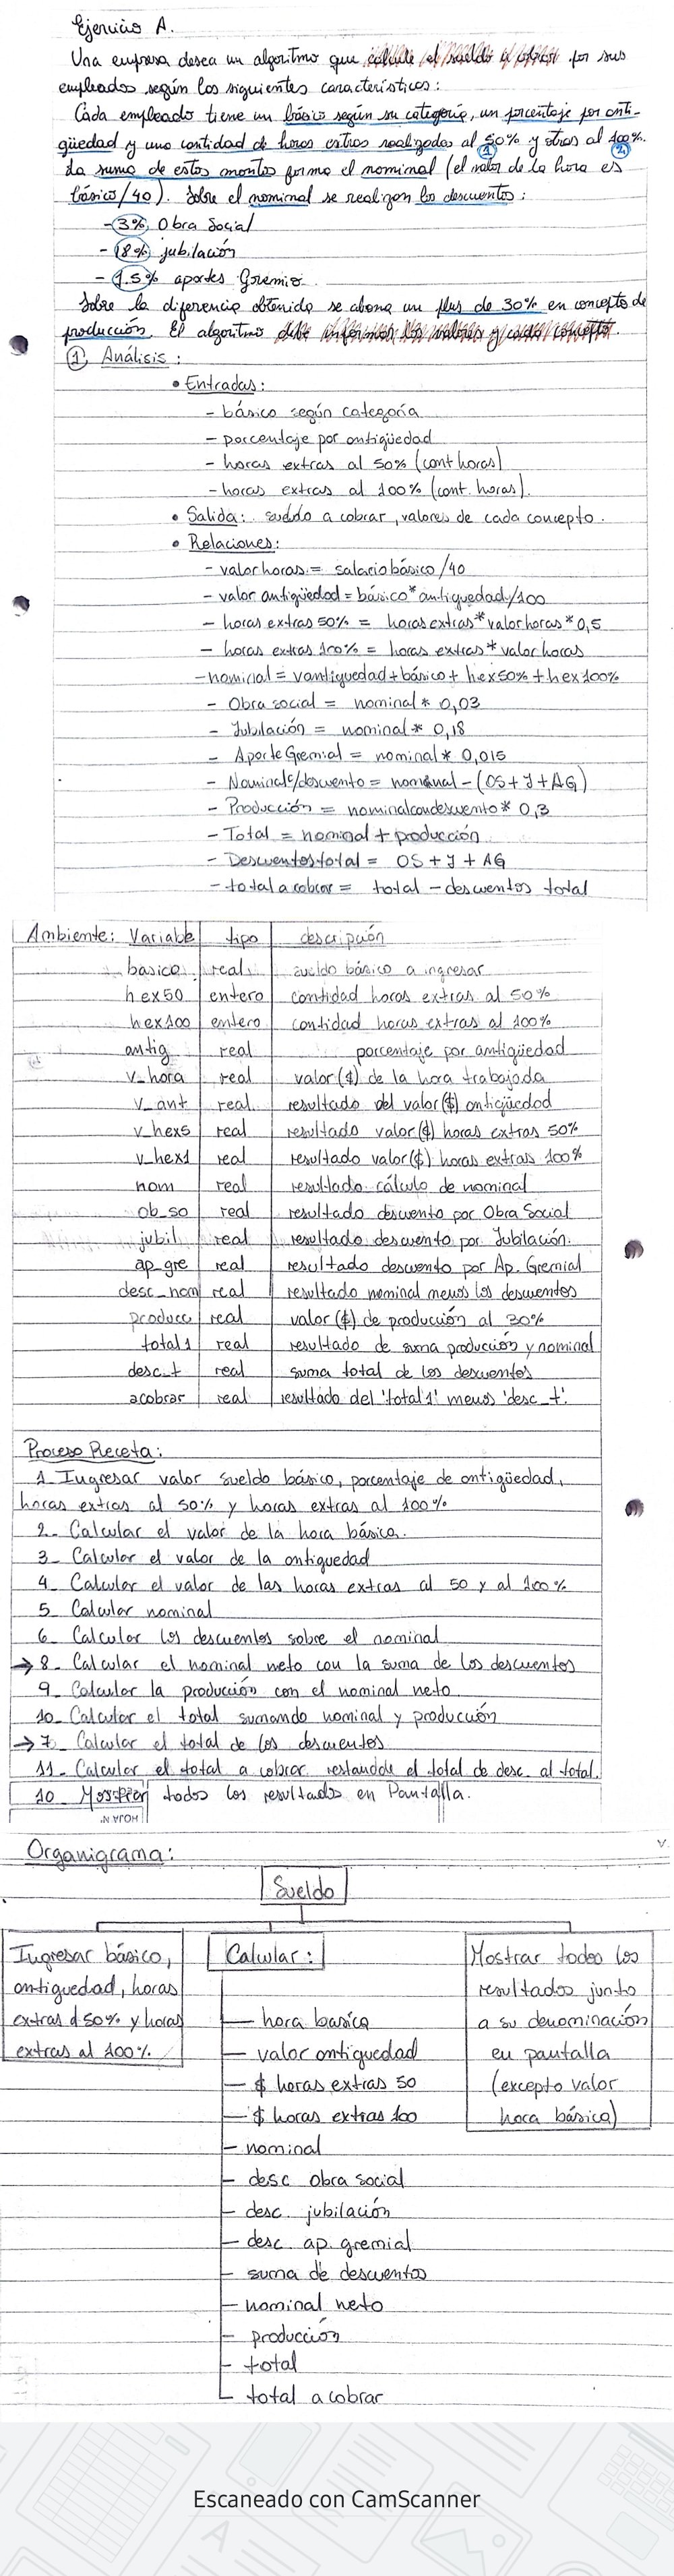 Ejercicio A.
Una empresa desea un algoritmo que calcule el sueldo a cobrar por sus
empleados según los siguientes características:
Cada empleado tiene un básico según su categoría, un porcentaje por anti-
güedad y una cantidad de horas extras realizadas al 50% y otras al 100%.
1 2
La suma de estos montos forma el nominal (el valor de la hora es
básico/40). Sobre el nominal se realizan los descuentos:
- 3% Obra Social
- 18% jubilación
- 1.5% aportes Gremio
Sobre la diferencia obtenida se abona un plus de 30% en concepto de
producción. El algoritmo debe informar los valores y cada concepto.
1 Análisis:
• Entradas:
- básico según categoría
- porcentaje por antigüedad
- horas extras al 50% (cant horas)
- horas extras al 100% (cant. horas).
• Salida: sueldo a cobrar, valores de cada concepto.
• Relaciones:
- valorhoras = salario básico/40
- valor antigüedad = básico*antiguedad/100
- horas extras 50% = horas extras*valorhoras*0,5
- horas extras 100% = horas extras*valor horas
- nominal = vantiguedad+básico+hex50%+hex100%
- Obra social = nominal * 0,03
- Jubilación = nominal * 0,18
- Aporte Gremial = nominal * 0,015
- Nominalc/descuento = nominal - (OS+J+AG)
- Producción = nominalcondescuento * 0,3
- Total = nominal + producción
- Descuentos total = OS + J + AG
- total a cobrar = total - descuentos total
Ambiente: Variable tipo descripción
basico real sueldo básico a ingresar
hex50 entero cantidad horas extras al 50%
hex100 entero cantidad horas extras al 100%
antig real porcentaje por antigüedad
v_hora real valor($) de la hora trabajada
v_ant real resultado del valor($) antigüedad
v_hex5 real resultado valor($) horas extras 50%
v_hex1 real resultado valor($) horas extras 100%
nom real resultado cálculo de nominal
ob_so real resultado descuento por Obra Social
jubil real resultado descuento por Jubilación.
ap_gre real resultado descuento por Ap. Gremial
desc_nom real resultado nominal menos los descuentos
producc real valor($) de produción al 30%
total1 real resultado de suma produción y nominal
desc_t real suma total de los descuentos
acobrar real resultado del 'total1' menos 'desc_t'.
Proceso Receta:
1. Ingresar valor sueldo básico, porcentaje de antigüedad,
horas extras al 50% y horas extras al 100%
2- Calcular el valor de la hora básica.
3- Calcular el valor de la antiguedad
4- Calcular el valor de las horas extras al 50 y al 100%
5- Calcular nominal
6- Calcular los descuentos sobre el nominal
→ 8- Calcular el nominal neto con la suma de los descuentos
9- Calcular la produción con el nominal neto
10- Calcular el total sumando nominal y producción
→ 7- Calcular el total de los descuentos
11- Calcular el total a cobrar restandole el total de desc. al total.
10- Mostrar todos los resultados en Pantalla.
HOJA N°
Organigrama:
Sueldo
Ingresar básico,
antiguedad, horas
extras al 50% y horas
extras al 100%.
Calcular:
hora basica
valor antiguedad
$ horas extras 50
$ horas extras 100
nominal
desc obra social
desc. jubilación
desc. ap. gremial
suma de descuentos
nominal neto
producción
total
total a cobrar
Mostrar todos los
resultados junto
a su denominación
en pantalla
(excepto valor
hora básica)
Escaneado con CamScanner